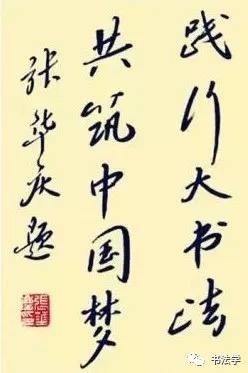 践行大书法
共筑中国梦
张华庆题
張華慶印
书法学